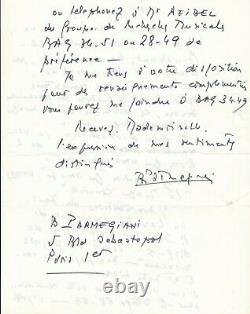 ou téléphonez à Mr REIBEL
du Groupe de Recherches Musicales
BAG 36.51 ou 28-49 de
préférence —
Je me tiens à votre disposition
pour des renseignements complémentaires
vous pouvez me joindre à BAG 34.49
Recevez Mademoiselle
l'expression de mes sentiments
distingués
B PARMEGIANI
5 Bld Sébastopol
Paris 1er
© ebay